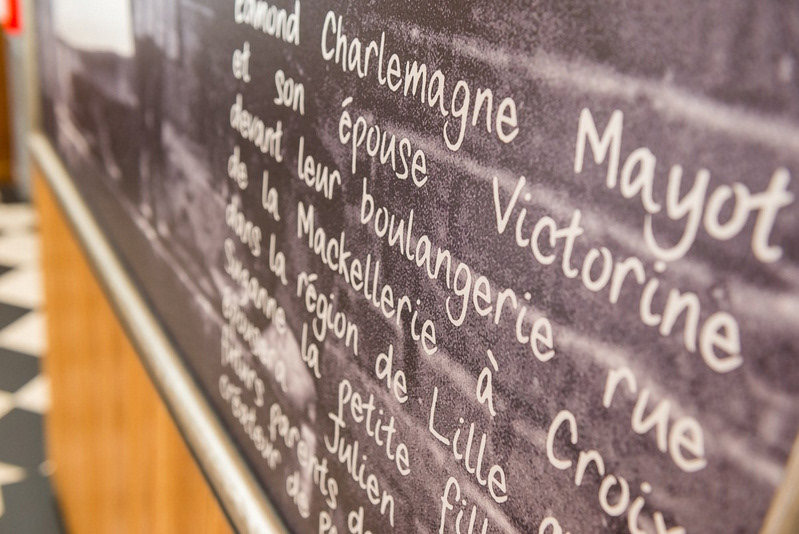 Edmond Charlemagne Mayot
et son épouse Victorine
devant leur boulangerie rue
de la Mackellerie à Croix
dans la région de Lille
Suzanne la petite
épousera Julien
parents
créateur de